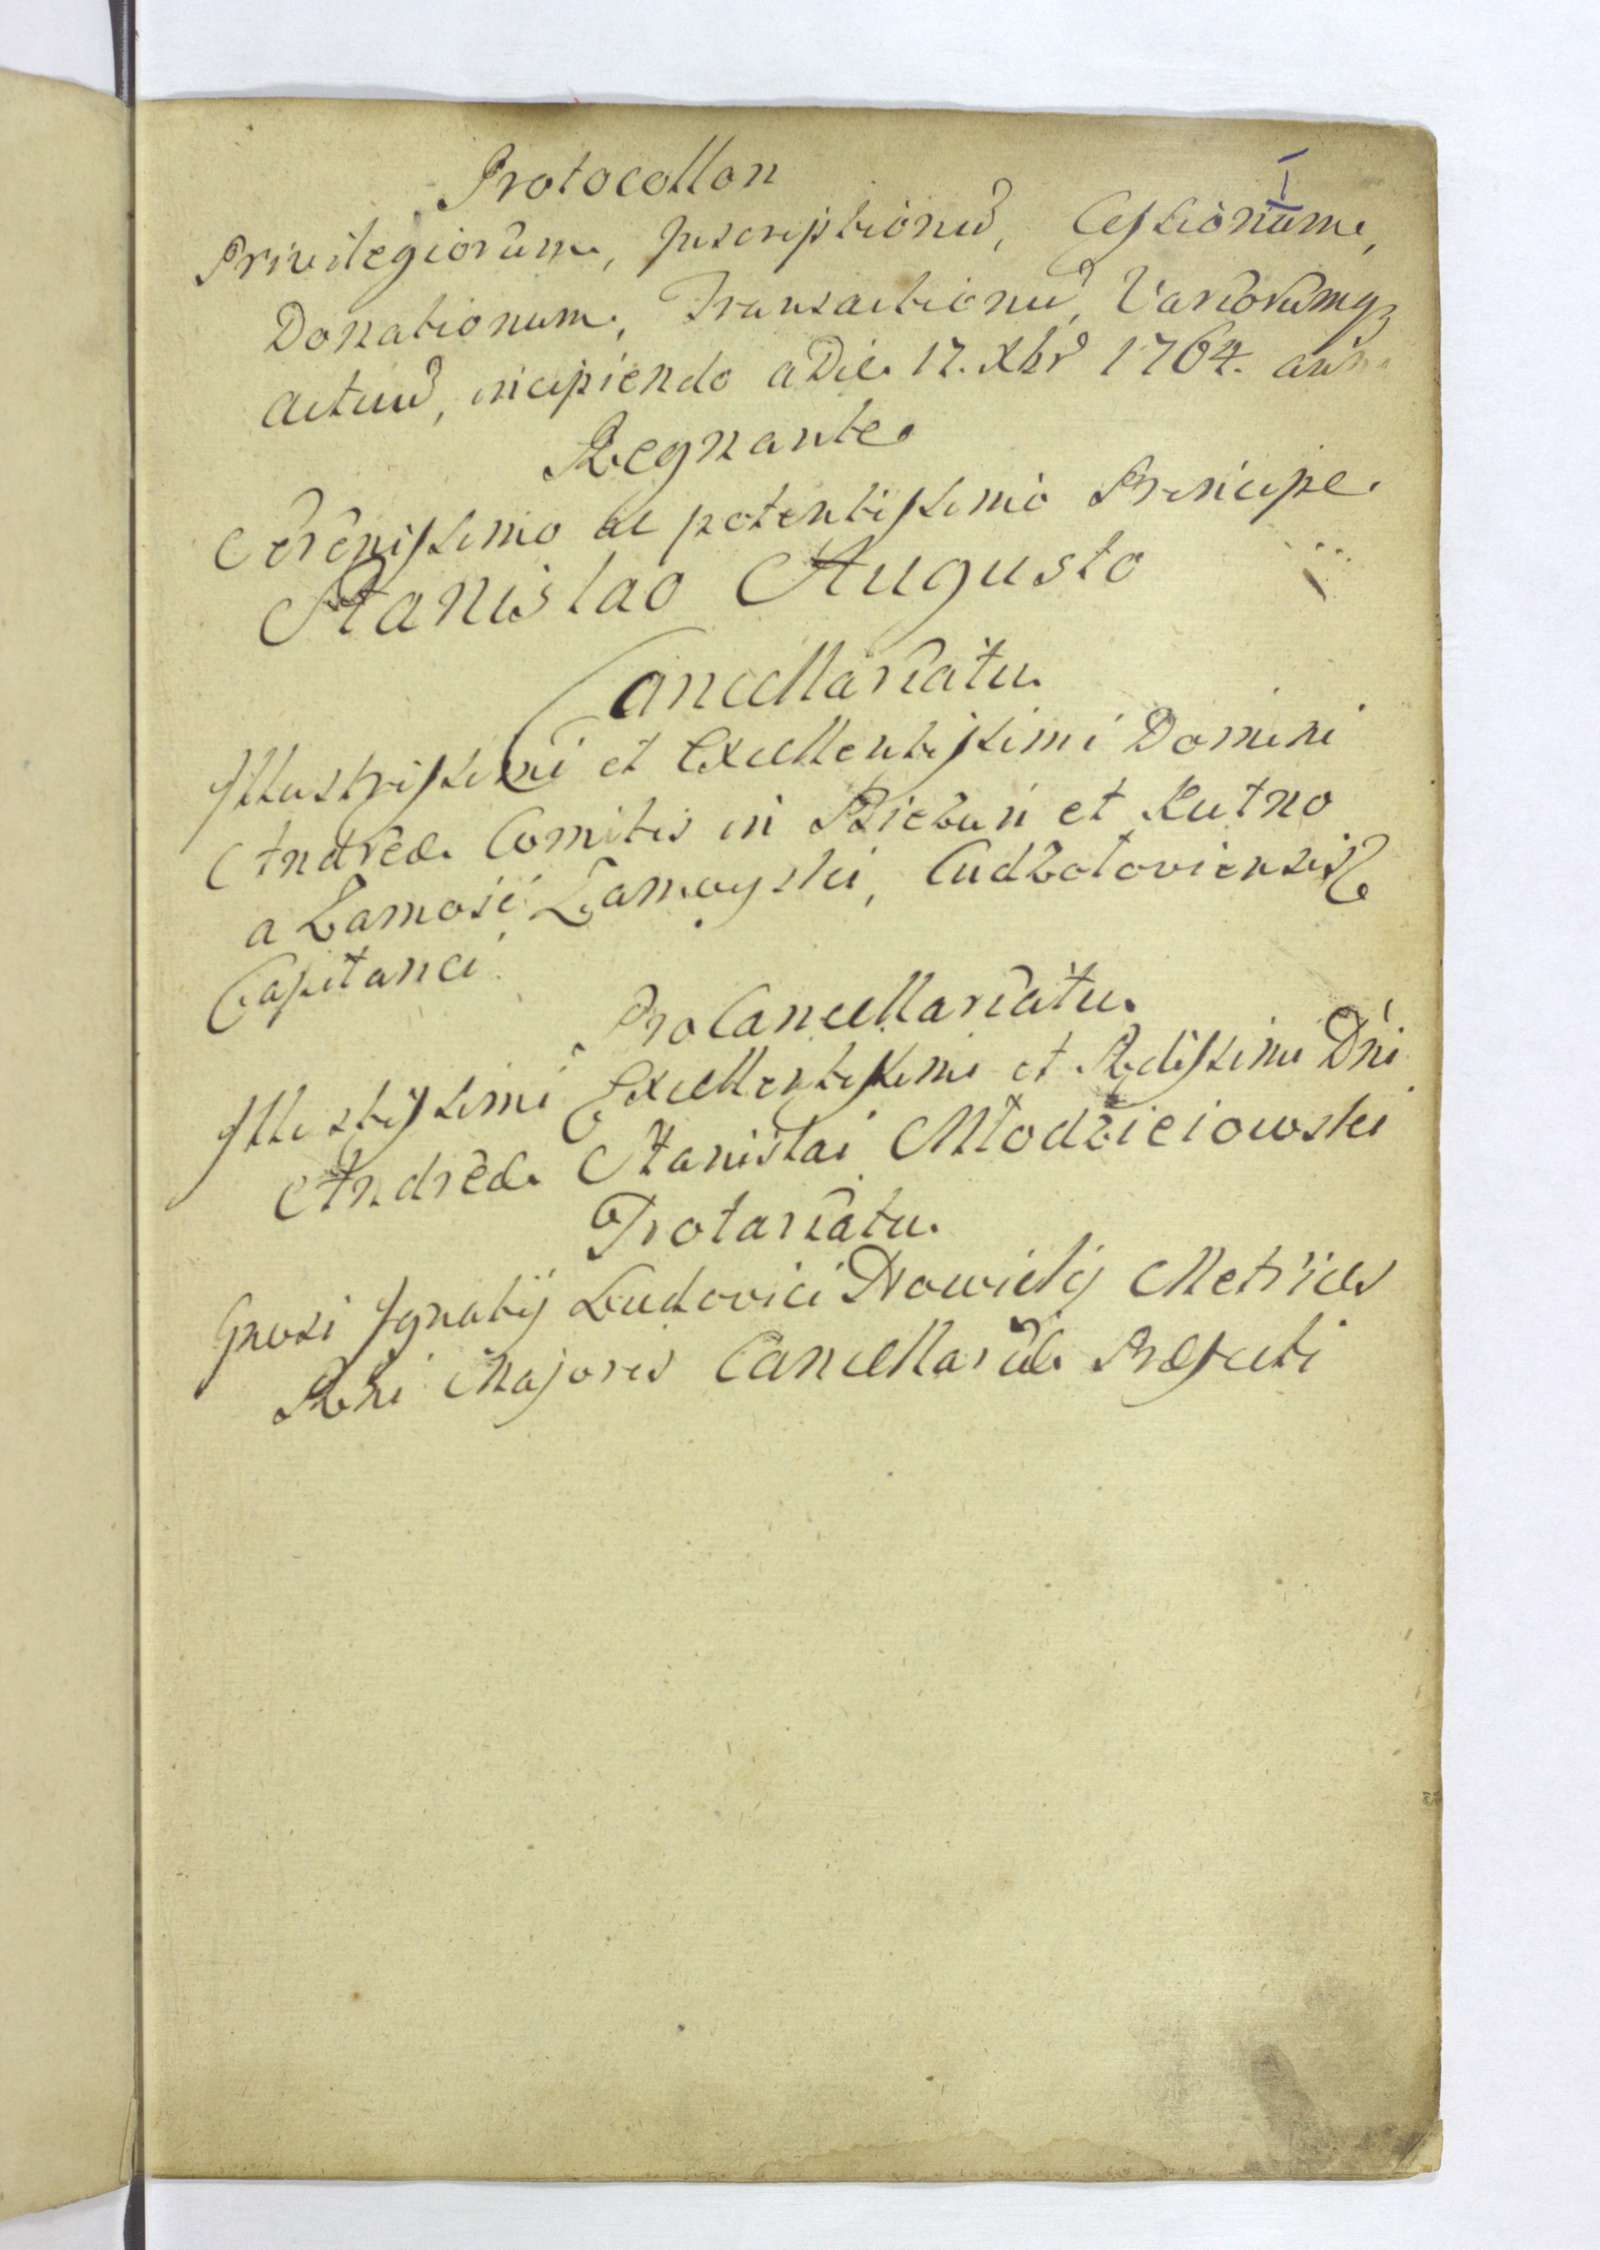 I
Protocollon
Privilegiorum, Inscriptionũ, Cessionum,
Donationum, Transactionũ, Variorumq
actuũ, incipiendo a Die 17. Xbr 1764. ann
Regnante
Serenissimo ac potentissimo Principe
Stanislao Augusto
Cancellariatu
Illustrissimi et Excellentissimi Domini
Andreæ Comitis in et Kutno
a Zamość Zamoyski,
Capitanei
ProCancellariatu
Excellentissimi et Rdissimi Dni
Andreæ Stanislai Młodzieiowski
Gnosi Ignatij Ludovici Nowicky Metrices
Rni Majoris Cancellariæ Præfecti